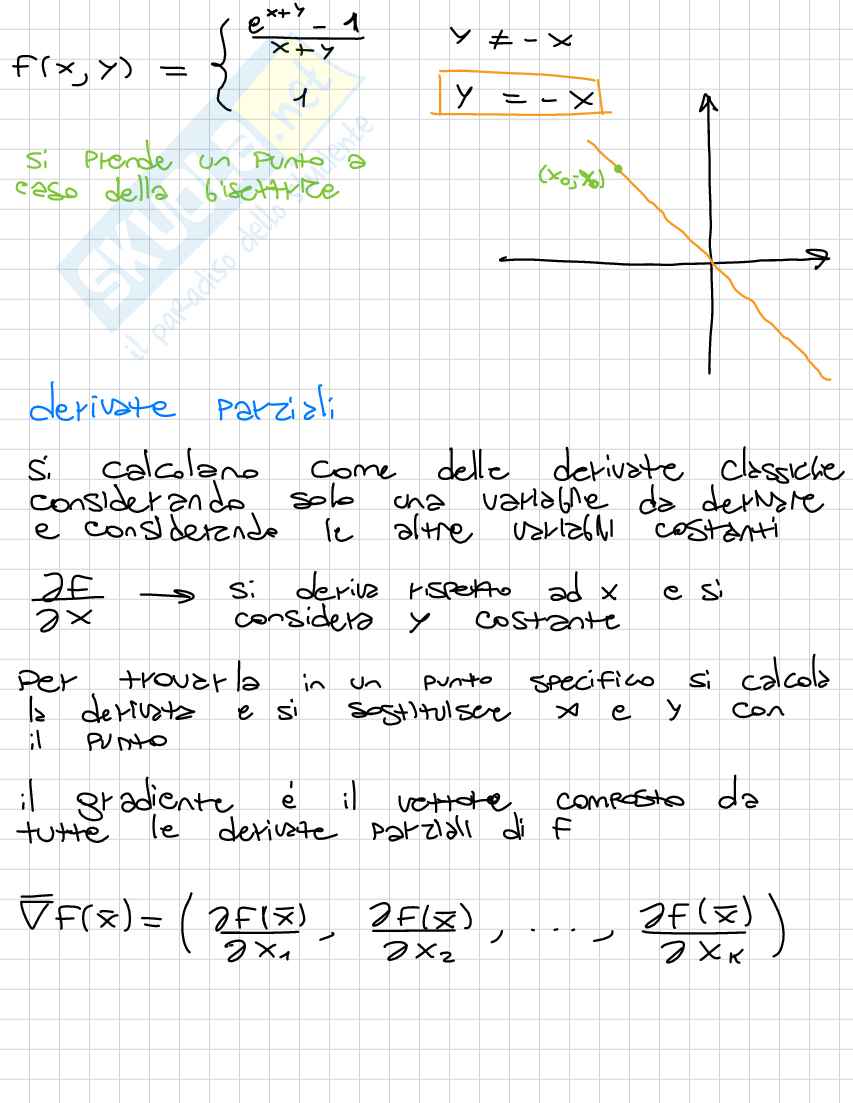 f(x, y) = { (e^(x+y) - 1)/(x+y)   y ≠ -x
1   y = -x
si prende un punto a
caso della bisettrice
(x₀;-x₀)
derivate parziali
Si calcolano come delle derivate classiche
considerando solo una variabile da derivare
e considerando le altre variabili costanti
∂f/∂x → si deriva rispetto ad x e si
considera y costante
Per trovarla in un punto specifico si calcola
la derivata e si sostituisce x e y con
il punto
il gradiente é il vettore composto da
tutte le derivate parziali di f
∇̅f(x̅) = (∂f(x̅)/∂x₁, ∂f(x̅)/∂x₂, ..., ∂f(x̅)/∂x_k)
SKUOLA.net
il paradiso dello studente